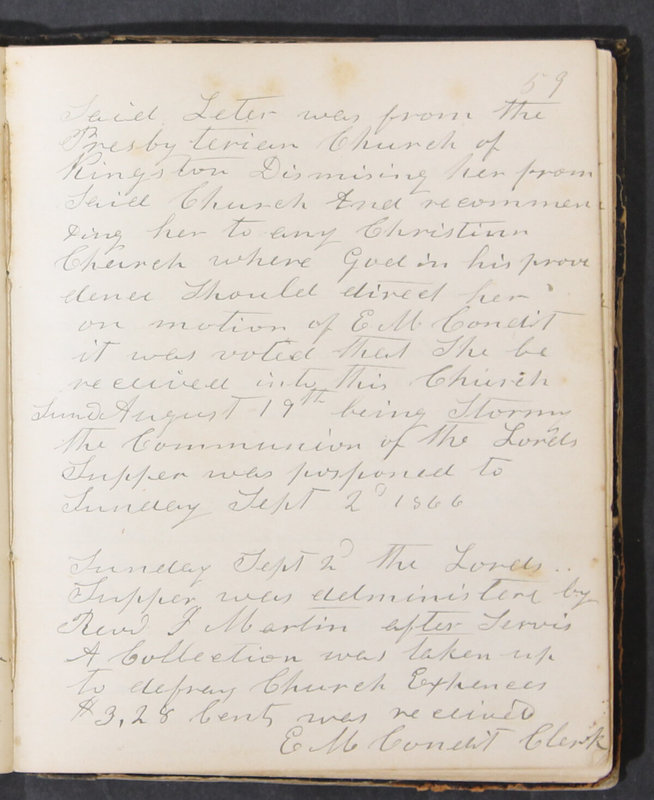 59
Said Leter was from the
Presbyterian Church of
Kingston Dismising her from
Said Church And recommen
ding her to any Christian
Church where God in his provi
dence Should direct her
on motion of E M Condit
it was voted that She be
received into this Church
Sund August 19th being Stormy
the Communion of the Lord's
Supper was posponed to
Sunday Sept 2d 1866
Sunday Sept 2d the Lords
Supper was adminis­tere by
Revd J Martin after Servis
A Collection was taken up
to defray Church Expences
$3,28 Cents was received
E M Condit Clerk